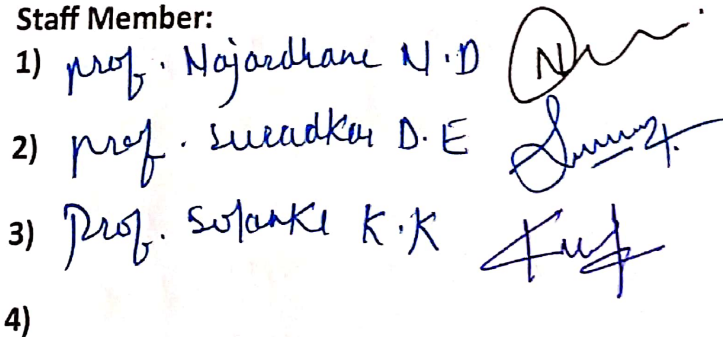 Staff Member:
1) prof. Najardhane N.D
2) prof. Suradkar D.E
3) Prof. Solanke K.K
4)